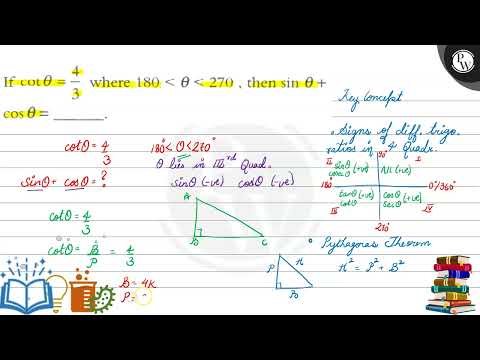 If cot θ = 4/3 where 180 < θ < 270 , then sin θ +
cos θ = ______.
cotθ = 4/3
sinθ + cosθ = ?
cotθ = 4/3
cotθ = B/P = 4/3
B = 4K
P =
180° < θ < 270°
θ lies in IIIrd Quad.
sinθ (-ve) cosθ (-ve)
A
B C
P H
B
Key Concept
• Signs of diff. trigo.
ratios in 4 Quadx.
90°
II I
sinθ cosecθ (+ve) All (+ve)
180° 0°/360°
tanθ cotθ (+ve) cosθ secθ (+ve)
III IV
270°
• Pythagoras Theorem
H² = P² + B²
PW